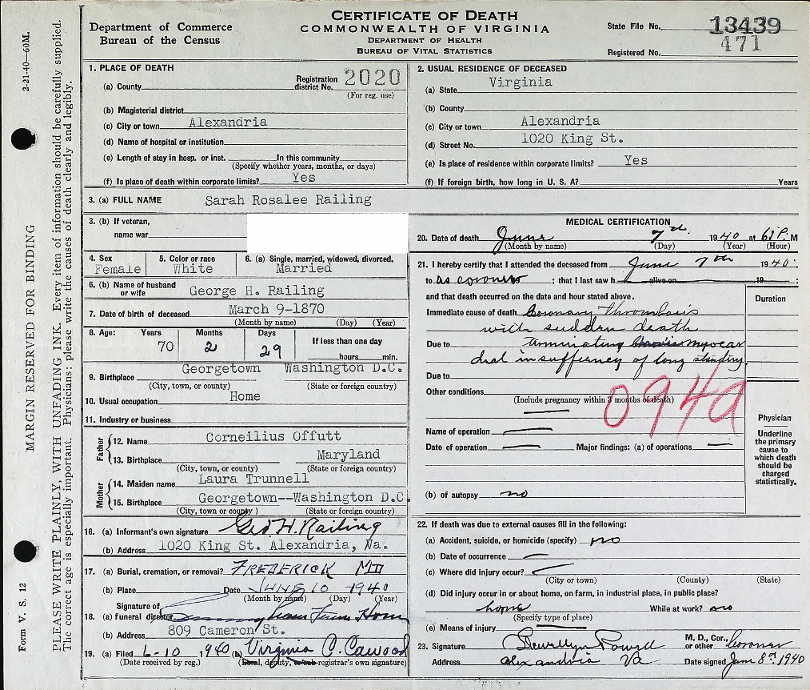 CERTIFICATE OF DEATH
COMMONWEALTH OF VIRGINIA
DEPARTMENT OF HEALTH
BUREAU OF VITAL STATISTICS
Department of Commerce
Bureau of the Census
State File No. 13439
Registered No. 471
2-21-40—60M.
MARGIN RESERVED FOR BINDING
Form V. S. 12
PLEASE WRITE PLAINLY, WITH UNFADING INK. Every item of information should be carefully supplied.
The correct age is especially important. Physicians: please write the causes of death clearly and legibly.
1. PLACE OF DEATH
(a) County
Registration district No. 2020
(For reg. use)
(b) Magisterial district
(c) City or town Alexandria
(d) Name of hospital or institution
(e) Length of stay in hosp. or inst. In this community
(Specify whether years, months, or days)
(f) Is place of death within corporate limits? Yes
2. USUAL RESIDENCE OF DECEASED
(a) State Virginia
(b) County
(c) City or town Alexandria
(d) Street No. 1020 King St.
(e) Is place of residence within corporate limits? Yes
(f) If foreign birth, how long in U. S. A? Years
3. (a) FULL NAME Sarah Rosalee Railing
3. (b) If veteran,
name war
4. Sex Female
5. Color or race White
6. (a) Single, married, widowed, divorced. Married
6. (b) Name of husband or wife George H. Railing
7. Date of birth of deceased March 9-1870
(Month by name) (Day) (Year)
8. Age: Years 70 Months 2 Days 29 If less than one day
hours min.
9. Birthplace Georgetown Washington D.C.
(City, town, or county) (State or foreign country)
10. Usual occupation Home
11. Industry or business
Father
12. Name Corneilius Offutt
13. Birthplace Maryland
(City, town, or county) (State or foreign country)
Mother
14. Maiden name Laura Trunnell
15. Birthplace Georgetown--Washington D.C.
(City, town or county) (State or foreign country)
16. (a) Informant's own signature Geo H. Railing
(b) Address 1020 King St. Alexandria, Va.
17. (a) Burial, cremation, or removal? FREDERICK MD
(b) Place Date JUNE 10 1940
(Month by name) (Day) (Year)
Signature of
18. (a) funeral director Funeral Home
(b) Address 809 Cameron St.
19. (a) Filed 6-10, 1940 (b) Virginia C. Cawood
(Date received by reg.) (Local, deputy, or sub registrar's own signature)
MEDICAL CERTIFICATION
20. Date of death June 7th. 1940 at P. M
(Month by name) (Day) (Year) (Hour)
21. I hereby certify that I attended the deceased from June 7th 1940
to as coroner ; that I last saw h alive on 19
and that death occurred on the date and hour stated above.
Duration
Immediate cause of death Coronary thrombosis
with sudden death
Due to terminating myocar
dial insufficency of long standing
Due to
Other conditions
(Include pregnancy within 3 months of death)
094a
Name of operation
Date of operation Major findings: (a) of operations
(b) of autopsy no
Physician
Underline the primary cause to which death should be charged statistically.
22. If death was due to external causes fill in the following:
(a) Accident, suicide, or homicide (specify) no
(b) Date of occurrence
(c) Where did injury occur?
(City or town) (County) (State)
(d) Did injury occur in or about home, on farm, in industrial place, in public place?
home While at work? no
(Specify type of place)
(e) Means of injury
23. Signature Llewellyn Powell M. D., Cor., or other Coroner
Address Alexandria Va Date signed June 8th 1940